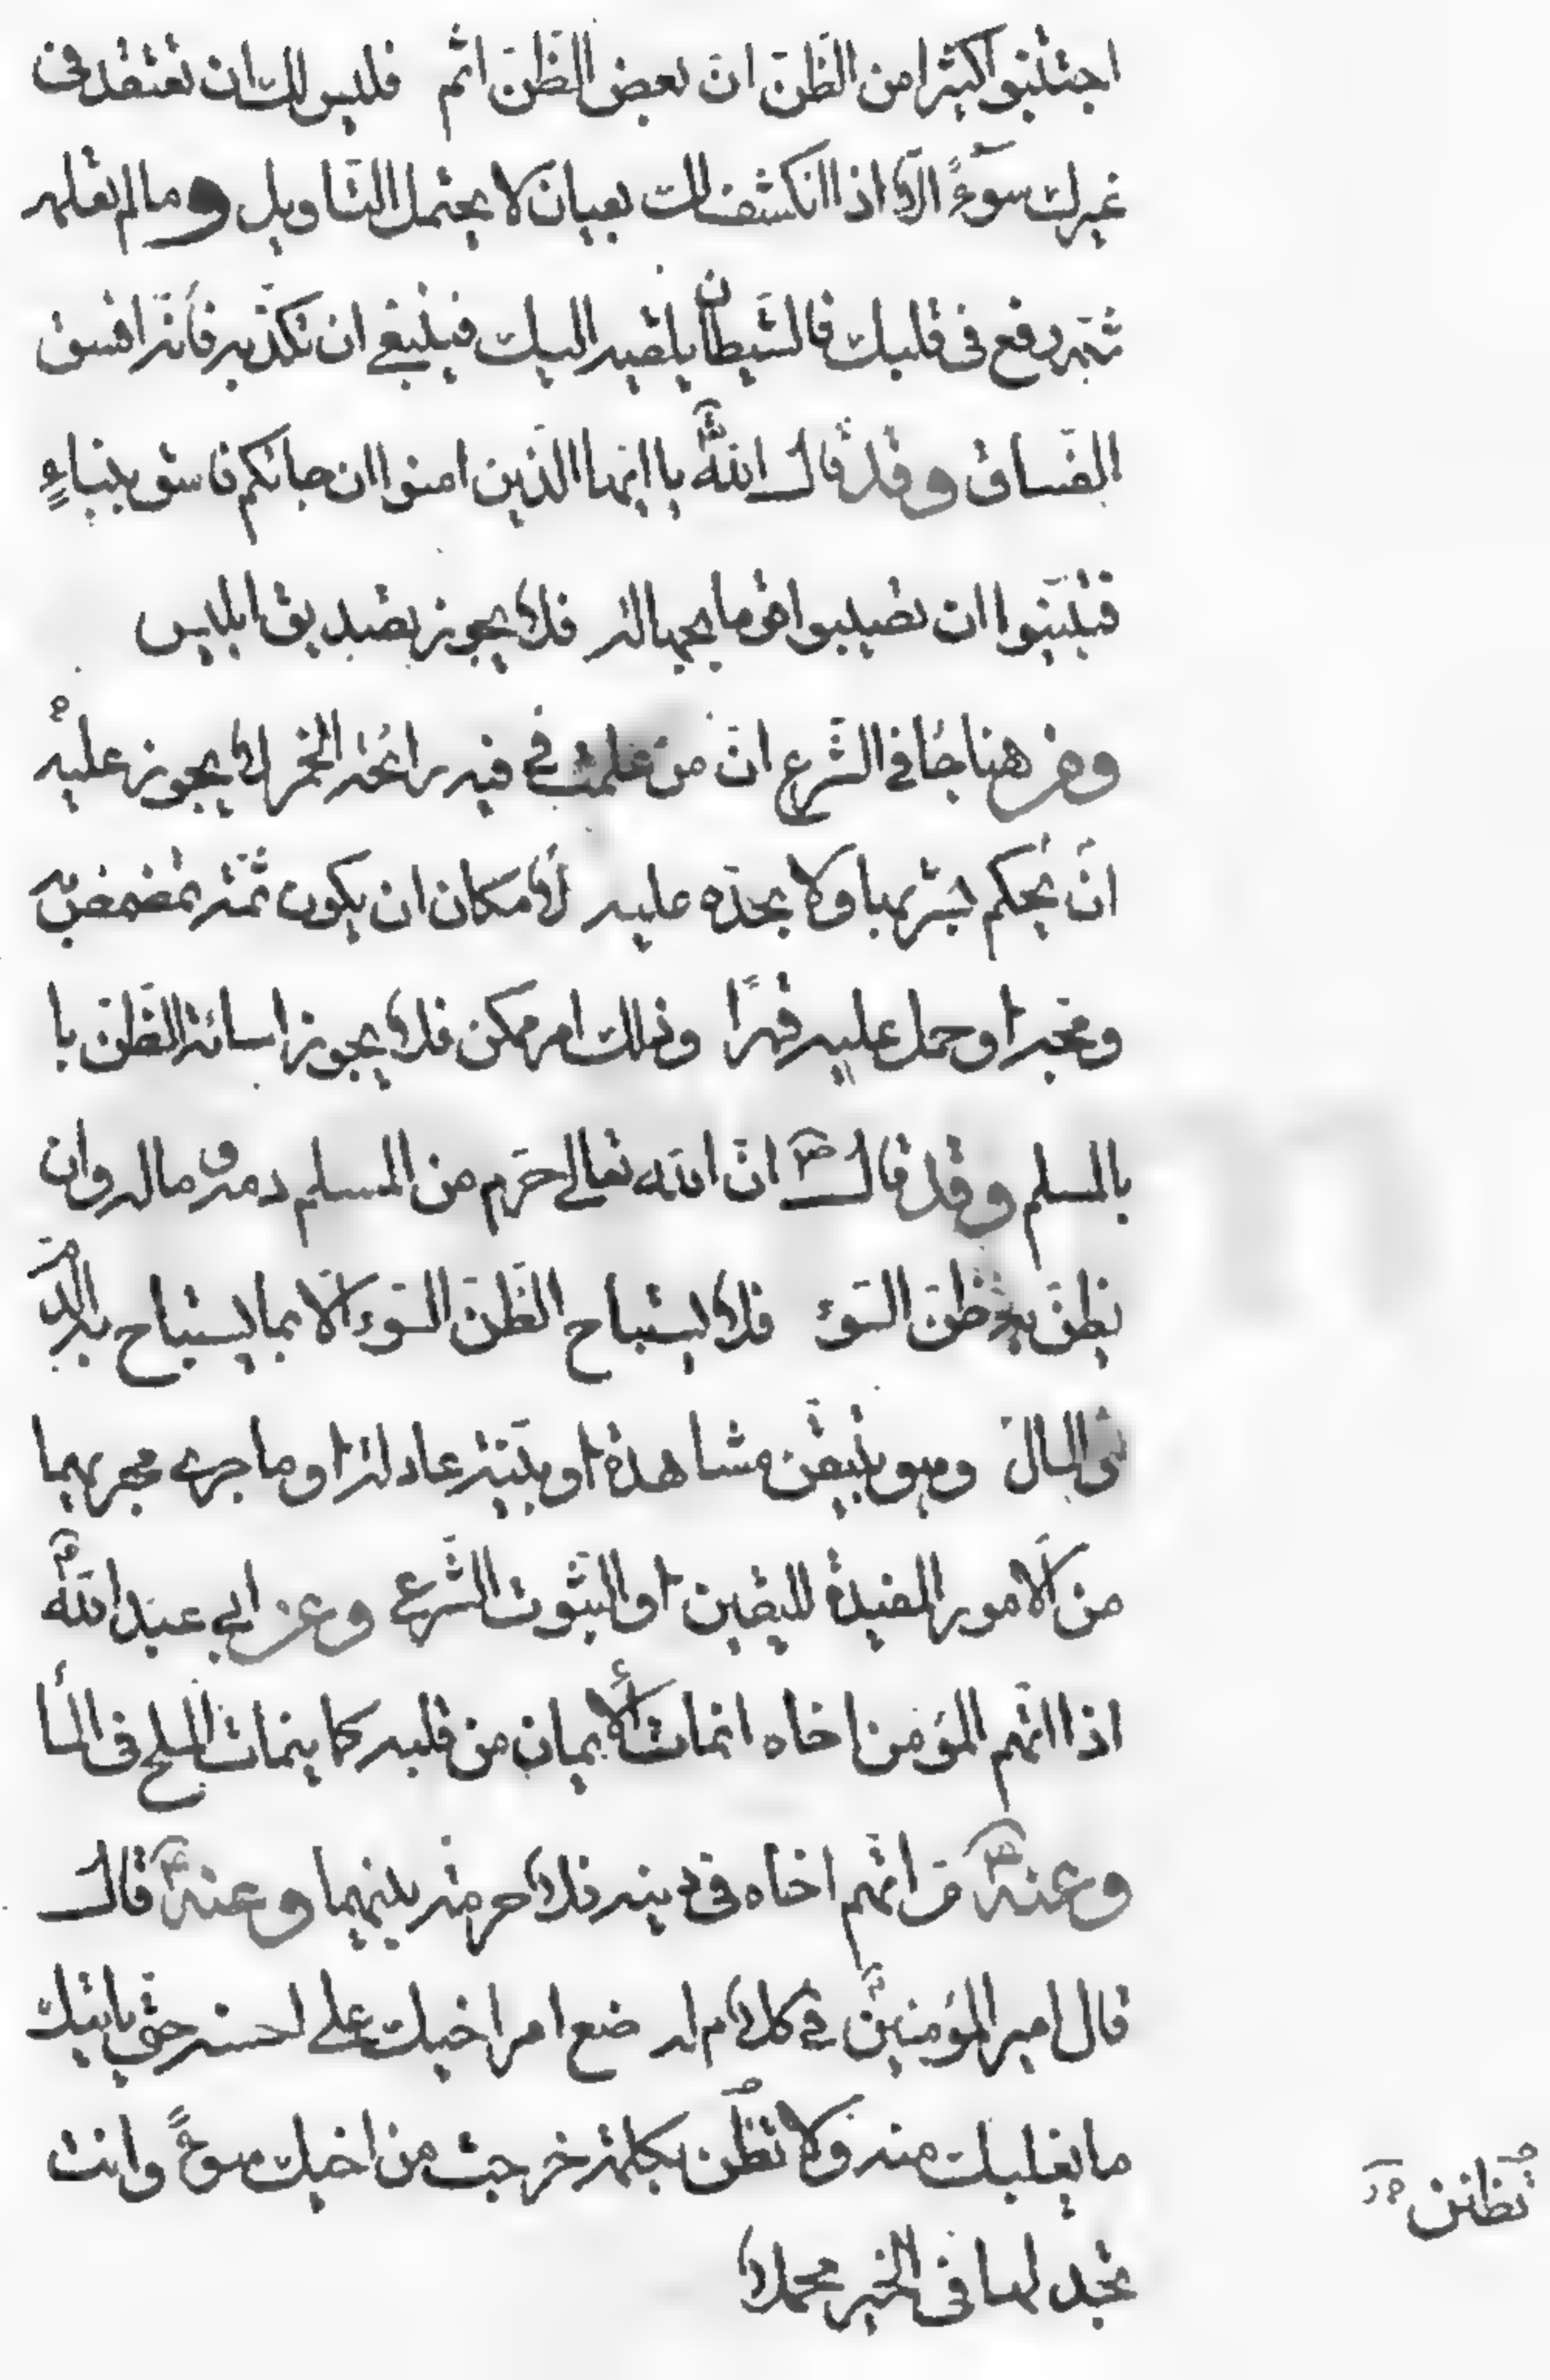 اجتنبوا كثيرا من الظنّ انّ بعض الظنّ اثم فليس لك ان تعتقد في
غيرك سوءً الّا اذا انكشف لك بعيان لا يحتمل التاويل وما لم تعلمه
ثمّ وقع في قلبك فالشيطان يلقيه اليك فينبغي ان تكذّبه فانّه افسق
الفساق وقد قال الله يا ايّها الذين امنوا ان جائكم فاسق بنباءٍ
فتبيّنوا ان تصيبوا قوما بجهالة فلا يجوز تصديق ابليس
ومن هنا جاء في الشّرع انّ من علمت في فيه رائحة الخمر لا يجوز عليه
ان تحكم بشربها ولا يحدّه عليه لأمكان ان يكون ثمّة تمضمض به
ومجّه او حمل عليه قهرًا وذلك امر ممكن فلا يجوز اسائة الظنّ با
بالمسلم وقد قال ص انّ الله تعالى حرّم من المسلم دمه و ماله وان
يظنّ به ظنّ السّوء فلا يستباح الظنّ السّوء الّا بما يستباح به الدّم
والمال وهو بتيقّن مشاهدة او بيّنة عادلة او ما جرى مجريهما
من الامور المفيدة لليقين او الثبوت الشّرعي وعن ابي عبد الله ع
اذا اتّهم المؤمن اخاه انماث الأيمان من قلبه كما ينماث الملح في الماء
وعنه ع من اتّهم اخاه في دينه فلا حرمة بينهما وعنه ع قال
قال امير المؤمنين ع في كلام له ضع امر اخيك على احسنه حتّى ياتيك
ما يغلبك منه ولا تظنّ بكلمة خرجت من اخيك سوءً وانت
تجد لها في الخير محملا
تظانن